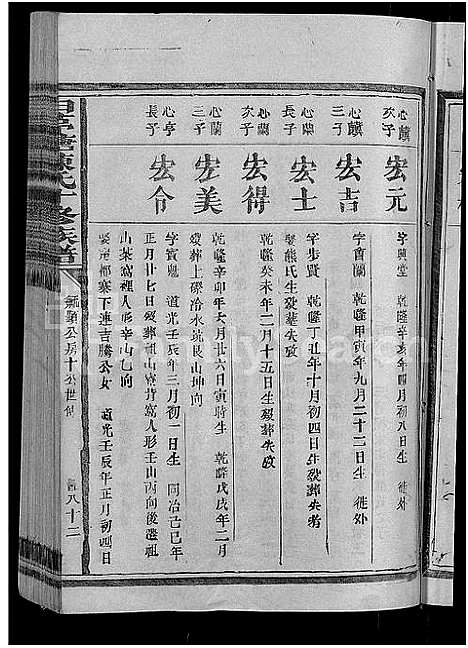 心蘭
次子
宏元
字興堂 乾隆辛亥年四月初八日生 徙外
心蘭
三子
宏吉
字會蘭 乾隆甲寅年九月二十三日生 徙外
心蘭
長子
宏士
字步賢 乾隆丁丑年十月初四日生歿葬失考
娶熊氏生歿葬失攷
心蘭
次子
宏得
乾隆癸未年二月十五日生歿葬失攷
心蘭
三子
宏美
乾隆辛卯年六月廿六日寅時生 乾隆戊戌年二月
歿葬上磜冷水坑艮山坤向
心亭
長子
宏令
字賓 道光壬辰年三月初一日生 同治己巳年
正月廿七日歿葬祖山寮背窩人形壬山丙向後遷祖
山茶窩裡人形辛山乙向
娶 都寨下連吉騰公女 道光壬辰年正月初四日
陳氏 修族譜
公房十公世傳
八十三